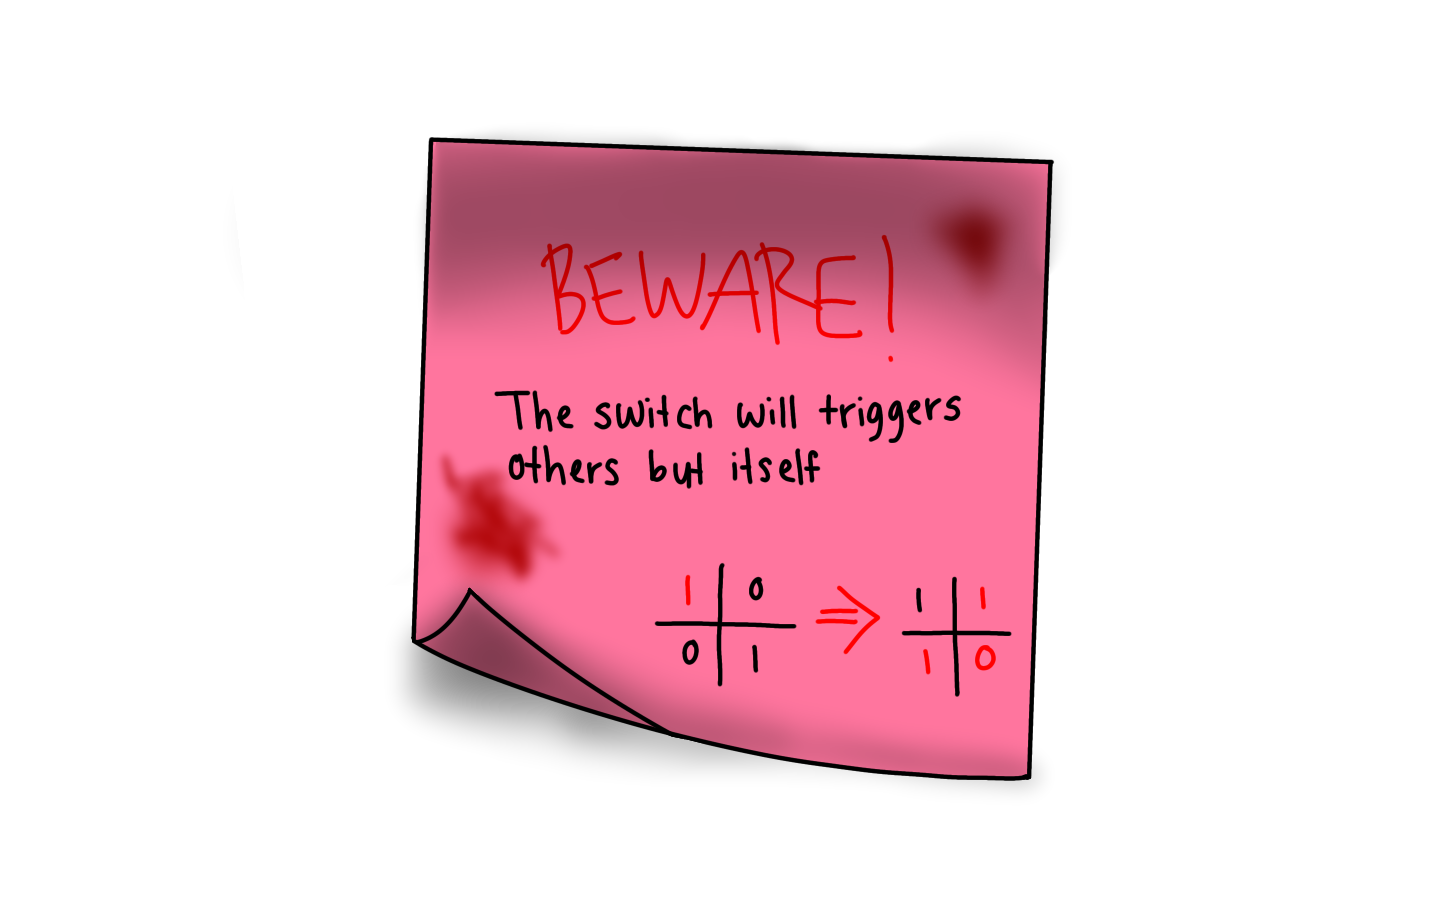 BEWARE!
The switch will triggers
others but itself
1 0 ⇒ 1 1
0 1 1 0